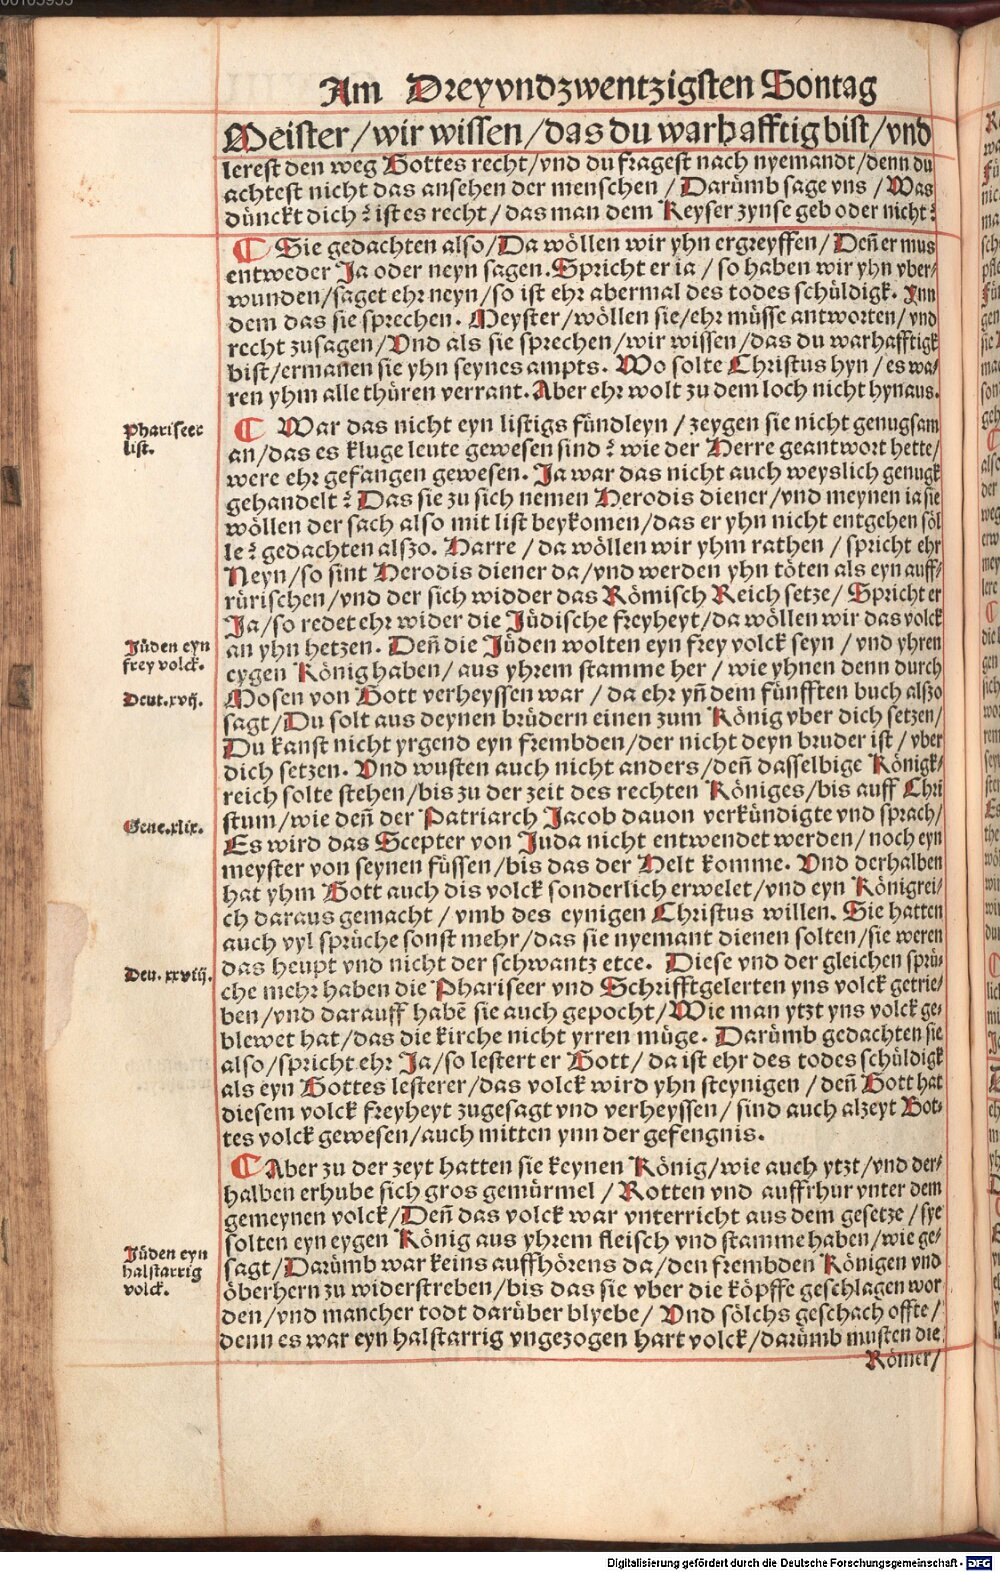 Am Dreyvndzwentzigsten Sontag
Meister / wir wissen / das du warhafftig bist / vnd
lerest den weg Gottes recht / vnd du fragest nach nyemandt / denn du
achtest nicht das ansehen der menschen / Darümb sage vns / Was
dünckt dich? ist es recht / das man dem Keyser zynse geb oder nicht?
Sie gedachten also / Da wöllen wir yhn ergreyffen / Deñ er mus
entweder Ja oder neyn sagen. Spricht er ia / so haben wir yhn vber-
wunden / saget ehr neyn / so ist ehr abermal des todes schüldigk. Inn
dem das sie sprechen. Meyster / wöllen sie / ehr müsse antworten / vnd
recht zusagen / Vnd als sie sprechen / wir wissen / das du warhafftigk
bist / ermanen sie yhn seynes ampts. Wo solte Christus hyn / es wa-
ren yhm alle thüren verrant. Aber ehr wolt zu dem loch nicht hynaus.
Phariseer
list.
War das nicht eyn listigs fündleyn / zeygen sie nicht genugsam
an / das es kluge leute gewesen sind? wie der Herre geantwort hette /
were ehr gefangen gewesen. Ja war das nicht auch weyslich genugk
gehandelt? Das sie zu sich nemen Herodis diener / vnd meynen ia sie
wöllen der sach also mit list beykomen / das er yhn nicht entgehen söl
le? gedachten alszo. Harre / da wöllen wir yhm rathen / spricht ehr
Neyn / so sint Herodis diener da / vnd werden yhn töten als eyn auff-
rürischen / vnd der sich widder das Römisch Reich setze / Spricht er
Ja / so redet ehr wider die Jüdische freyheyt / da wöllen wir das volck
Jüden eyn
frey volck.
an yhn hetzen. Deñ die Jüden wolten eyn frey volck seyn / vnd yhren
eygen König haben / aus yhrem stamme her / wie yhnen denn durch
Deut. xvij.
Mosen von Gott verheyssen war / da ehr yñ dem fünfften buch alszo
sagt / Du solt aus deynen brüdern einen zum König vber dich setzen /
Du kanst nicht yrgend eyn frembden / der nicht deyn bruder ist / vber
dich setzen. Vnd wusten auch nicht anders / deñ dasselbige Königk-
reich solte stehen / bis zu der zeit des rechten Königes / bis auff Chri
Gene. xlix.
stum / wie deñ der Patriarch Jacob dauon verkündigte vnd sprach /
Es wird das Scepter von Juda nicht entwendet werden / noch eyn
meyster von seynen füssen / bis das der Helt komme. Vnd derhalben
hat yhm Gott auch dis volck sonderlich erwelet / vnd eyn Königrei-
ch daraus gemacht / vmb des eynigen Christus willen. Sie hatten
auch vyl sprüche sonst mehr / das sie nyemant dienen solten / sie weren
Deu. xxviij.
das heupt vnd nicht der schwantz etce. Diese vnd der gleichen sprü-
che mehr haben die Phariseer vnd Schrifftgelerten yns volck getrie-
ben / vnd darauff habẽ sie auch gepocht / Wie man ytzt yns volck ge-
blewet hat / das die kirche nicht yrren müge. Darümb gedachten sie
also / spricht ehr Ja / so lestert er Gott / da ist ehr des todes schüldigk
als eyn Gottes lesterer / das volck wird yhn steynigen / deñ Gott hat
diesem volck freyheyt zugesagt vnd verheyssen / sind auch alzeyt Got-
tes volck gewesen / auch mitten ynn der gefengnis.
Aber zu der zeyt hatten sie keynen König / wie auch ytzt / vnd der-
halben erhube sich gros gemürmel / Rotten vnd auffrhur vnter dem
gemeynen volck / Deñ das volck war vnterricht aus dem gesetze / sye
solten eyn eygen König aus yhrem fleisch vnd stamme haben / wie ge-
Jüden eyn
halstarrig
volck.
sagt / Darümb war keins auffhörens da / den frembden Königen vnd
öberhern zu widerstreben / bis das sie vber die köpffe geschlagen wor
den / vnd mancher todt darüber blyebe / Vnd sölchs geschach offte /
denn es war eyn halstarrig vngezogen hart volck / darümb musten die
Römer /
Digitalisierung gefördert durch die Deutsche Forschungsgemeinschaft - DFG